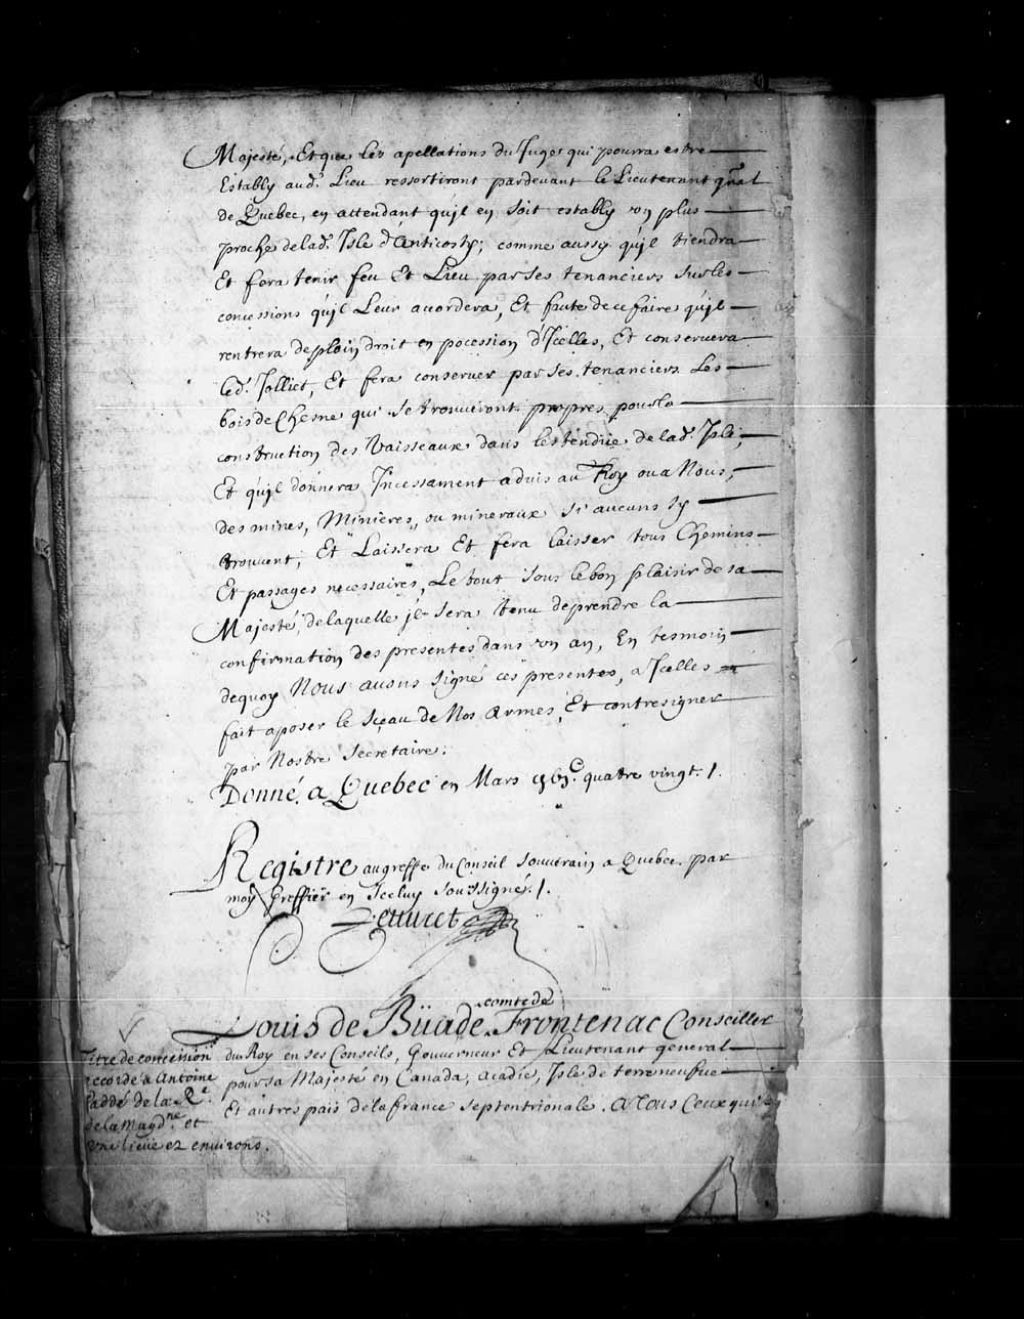 Majesté, Et que les apellations du Juges qui pourra estre
Estably aud.t Lieu ressortiront pardevant le Lieutenant gñal
de Quebec, en attendant qu'jl en soit estably vn plus
proche de lad.e Isle d'Anticosty; comme aussy qu'jl tiendra
Et fera tenir feu Et Lieu par ses tenanciers sur les
concessions qu'jl Leur accordera, Et faute de ce faire, qu'jl
rentrera de plain droit en pocession d'Icelles, Et conservera
led.t Jolliet, Et fera conserver par ses tenanciers Les
bois de Chesne qui se trouveront propres pour la
construction des Vaisseaux dans lestendüe de lad.e Isle,
Et qu'jl donnera Incessament advis au Roy ou a Nous,
des mines, Minieres, ou mineraux si aucuns s'y
trouvent, Et Laissera Et fera laisser tous Chemins
Et passages necessaires, Le tout sous le bon plaisir de sa
Majesté, de laquelle jl sera tenu de prendre la
confirmation des presentes dans vn an, En tesmoin
dequoy Nous avons signé ces presentes, a Icelles
fait aposer le sçeau de Nos Armes, Et contresigner
par Nostre secretaire.
Donné a Quebec en Mars gbj.C quatre vingt. /.
Registre au greffe du Conseil souverain a Quebec par
moy Greffier en Iceluy soussigné. /.
Peuvret
comte de
Louis de Büade Frontenac Conseiller
du Roy en ses Conseils, Gouverneur Et Lieutenant general
pour sa Majesté en Canada, acadie, Isle de terre neufve
Et autres païs de la france septentrionale. A Tous Ceux qui
Titre de concession
accordé a Antoine
Caddé de la R.e
de la Magd.ne et
vne lieüe ez environs.